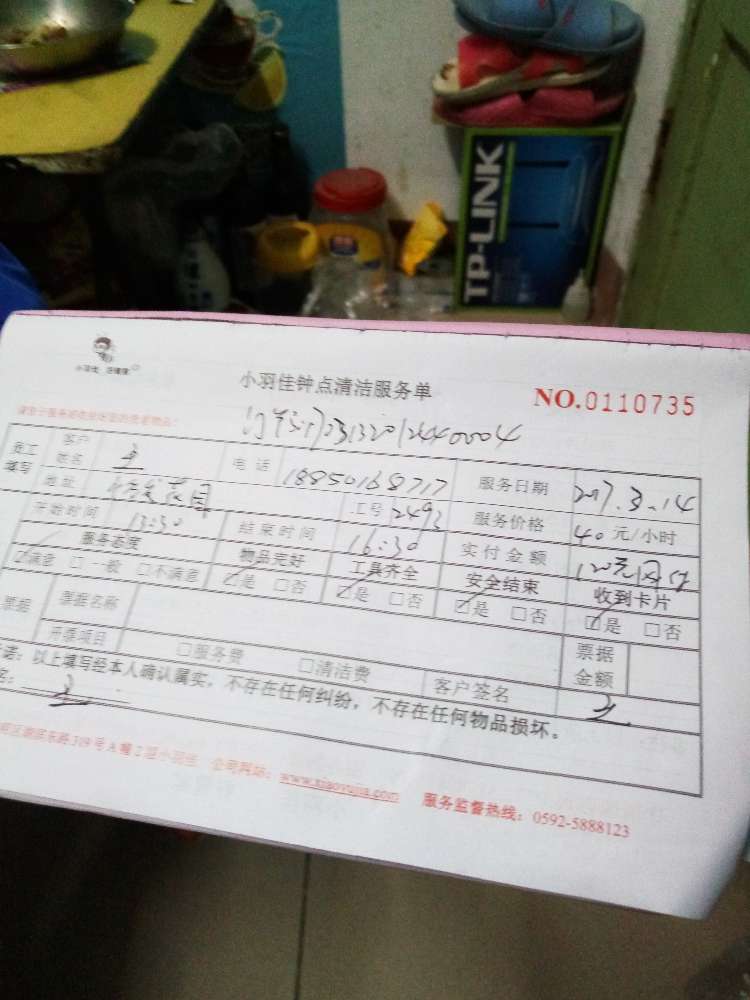 TP-LINK
小羽佳钟点清洁服务单
NO.0110735
客户姓名 王 电话 18850168717 服务日期 2017.3.14
员工填写
地址 花园 工号 2493 服务价格 40 元/小时
开始时间 13:30 结束时间 16:30 实付金额 120元
服务态度 物品完好 工具齐全 安全结束 收到卡片
☑满意 □一般 □不满意 ☑是 □否 ☑是 □否 ☑是 □否 ☑是 □否
票据 票据名称 票据金额
开票项目 □服务费 □清洁费 客户签名 王
诺：以上填写经本人确认属实，不存在任何纠纷，不存在任何物品损坏。
名： 王
东路319号A幢2层小羽佳 公司网站：www.xiaoyujia.com 服务监督热线：0592-5888123